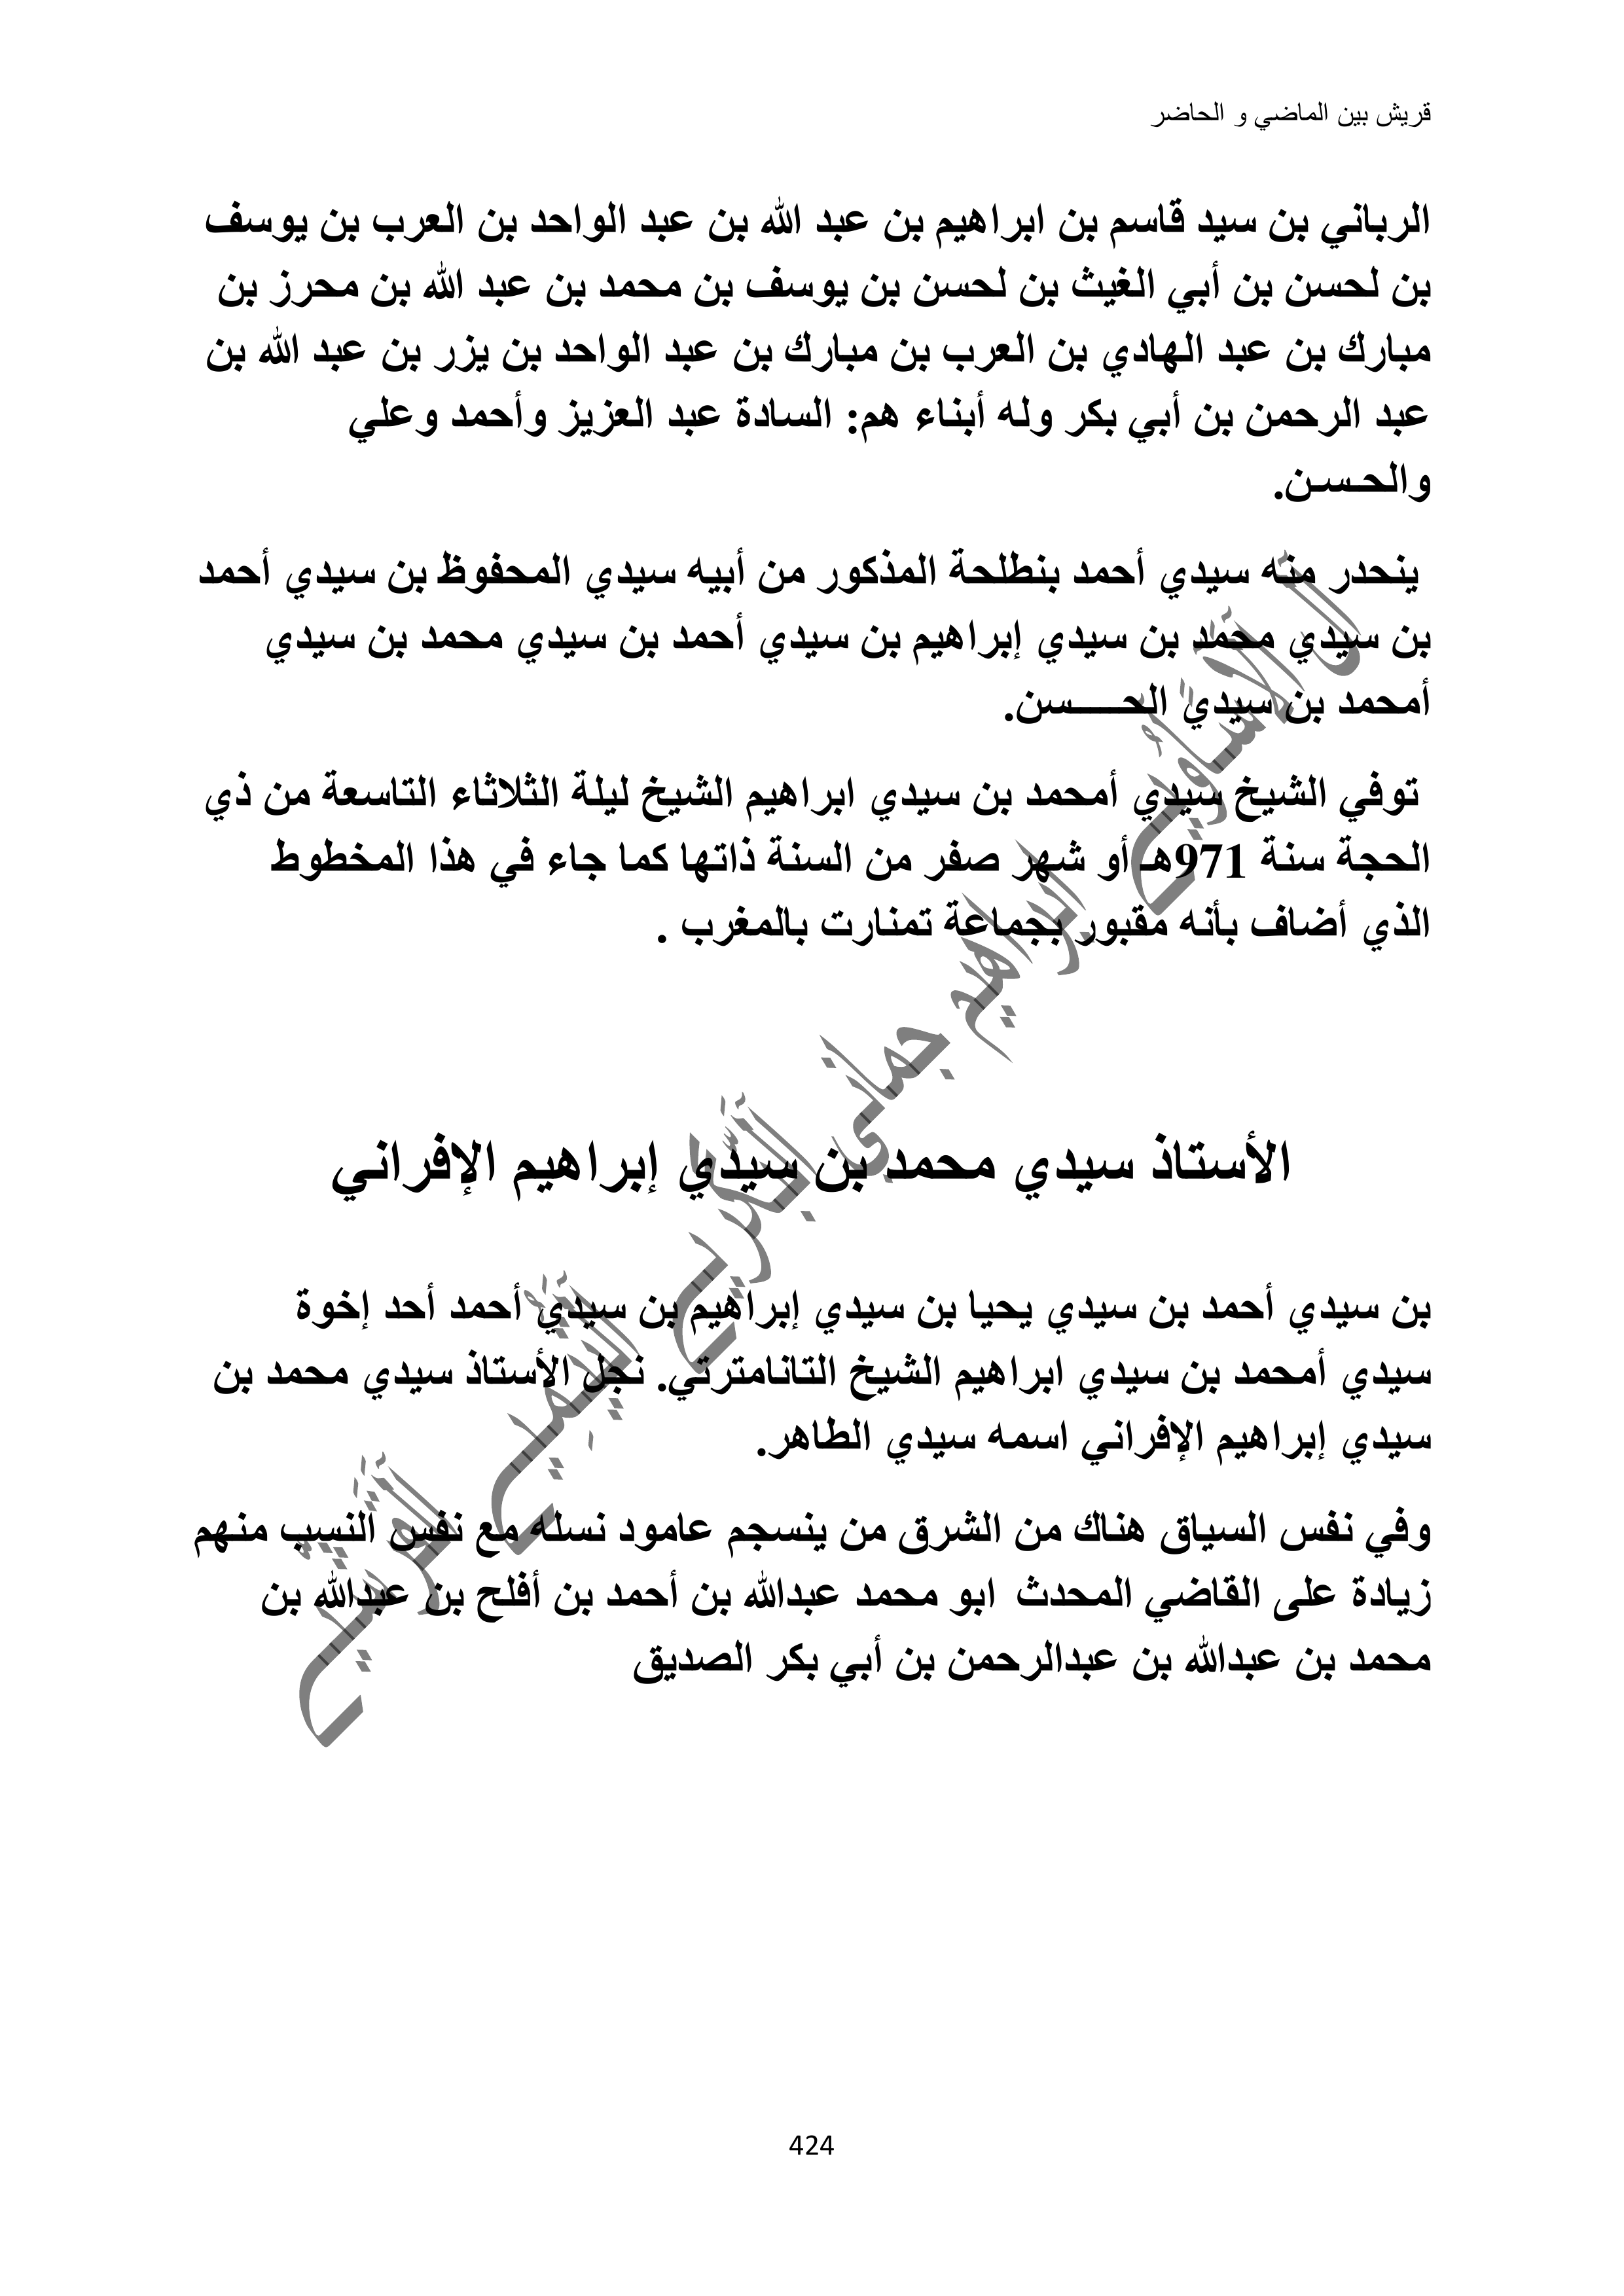 قريش بين الماضي و الحاضر
الرباني بن سيد قاسم بن ابراهيم بن عبد الله بن عبد الواحد بن العرب بن يوسف
بن لحسن بن أبي الغيث بن لحسن بن يوسف بن محمد بن عبد الله بن محرز بن
مبارك بن عبد الهادي بن العرب بن مبارك بن عبد الواحد بن يزر بن عبد الله بن
عبد الرحمن بن أبي بكر وله أبناء هم: السادة عبد العزيز وأحمد وعلي
والحـسـن.
ينحدر منه سيدي أحمد بنطلحة المذكور من أبيه سيدي المحفوظ بن سيدي أحمد
بن سيدي محمد بن سيدي إبراهيم بن سيدي أحمد بن سيدي محمد بن سيدي
أمحمد بن سيدي الحـــــسن.
توفي الشيخ سيدي أمحمد بن سيدي ابراهيم الشيخ ليلة الثلاثاء التاسعة من ذي
الحجة سنة 971هـ أو شهر صفر من السنة ذاتها كما جاء في هذا المخطوط
الذي أضاف بأنه مقبور بجماعة تمنارت بالمغرب .
الأستاذ سيدي محمد بن سيدي إبراهيم الإفراني
بن سيدي أحمد بن سيدي يحيا بن سيدي إبراهيم بن سيدي أحمد أحد إخوة
سيدي أمحمد بن سيدي ابراهيم الشيخ التانامترتي. نجل الأستاذ سيدي محمد بن
سيدي إبراهيم الإفراني اسمه سيدي الطاهر.
وفي نفس السياق هناك من الشرق من ينسجم عامود نسله مع نفس النسب منهم
زيادة على القاضي المحدث ابو محمد عبدالله بن أحمد بن أفلح بن عبدالله بن
محمد بن عبدالله بن عبدالرحمن بن أبي بكر الصديق
424